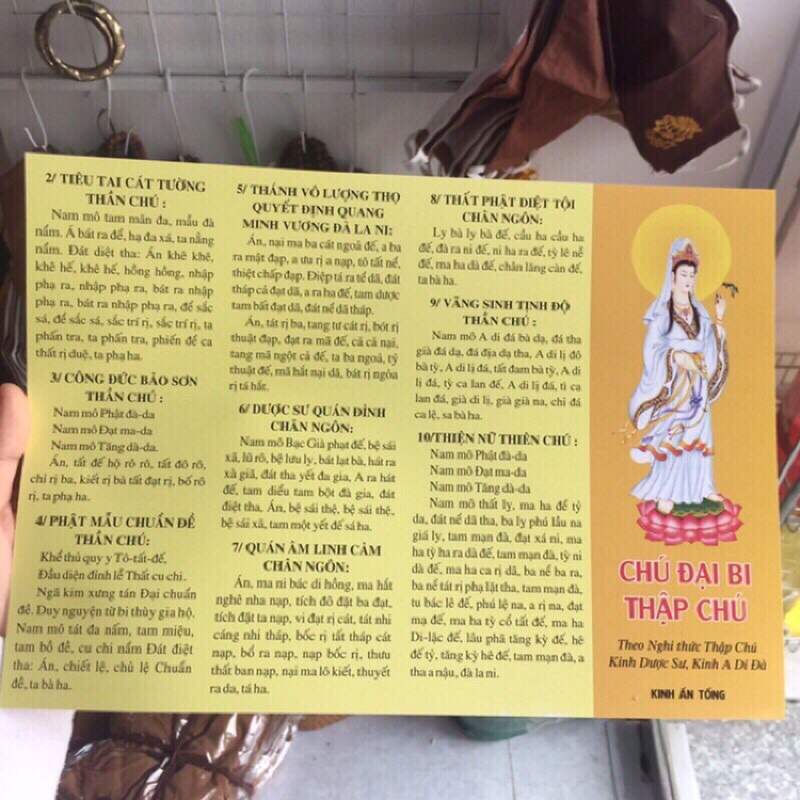 2/ TIÊU TAI CÁT TƯỜNG
THẦN CHÚ :
Nam mô tam mãn đa, mẫu đà
nẩm. Á bát ra để, hạ đa xá, ta nẳng
nẩm. Đát điệt tha: Án khê khê,
khê hế, khê hế, hồng hồng, nhập
phạ ra, nhập phạ ra, bát ra nhập
phạ ra, bát ra nhập phạ ra, để sắc
sá, để sắc sá, sắc trí rị, sắc trí rị, ta
phấn tra, ta phấn tra, phiến để ca
thất rị duệ, ta phạ ha.
3/ CÔNG ĐỨC BẢO SƠN
THẦN CHÚ :
Nam mô Phật đà-da
Nam mô Đạt ma-da
Nam mô Tăng dà-da.
Án, tất đế hộ rô rô, tất đô rô,
chỉ rị ba, kiết rị bà tất đạt rị, bố rô
rị, ta phạ ha.
4/ PHẬT MẪU CHUẨN ĐỀ
THẦN CHÚ:
Khể thủ quy y Tô-tất-đế,
Đầu diện đỉnh lễ Thất cu chi.
Ngã kim xưng tán Đại chuẩn
đề. Duy nguyện từ bi thùy gia hộ.
Nam mô tát đa nẩm, tam miệu,
tam bồ đề, cu chi nẩm Đát điệt
tha: Án, chiết lệ, chủ lệ Chuẩn
đề, ta bà ha.
5/ THÁNH VÔ LƯỢNG THỌ
QUYẾT ĐỊNH QUANG
MINH VƯƠNG ĐÀ LA NI:
Án, nại ma ba cát ngoả đế, a ba
ra mật đạp, a ưu rị a nạp, tô tất nể,
thiệt chấp đạp. Điệp tá ra tể dã, đát
tháp cả đạt dã, a ra ha đế, tam dược
tam bất đạt dã, đát nể dã tháp.
Án, tát rị ba, tang tư cát rị, bót rị
thuật đạp, đạt ra mã đế, cả cả nại,
tang mã ngột cả đế, ta ba ngoả, tỷ
thuật đế, mã hắt nại dã, bát rị ngỏa
rị tá hắt.
6/ DƯỢC SƯ QUÁN ĐỈNH
CHÂN NGÔN:
Nam mô Bạc Già phạt đế, bệ sái
xả, lũ rô, bệ lưu ly, bát lạt bà, hát ra
xà giã, đát tha yết đa gia, A ra hát
đế, tam diểu tam bột đà gia, đát
điệt tha, Án, bệ sái thệ, bệ sái thệ,
bệ sái xả, tam một yết đế sá ha.
7/ QUÁN ÂM LINH CẢM
CHÂN NGÔN:
Án, ma ni bác di hồng, ma hắt
nghê nha nạp, tích đô đặt ba đạt,
tích đặt ta nạp, vi đạt rị cát, tát nhi
cáng nhi tháp, bốc rị tất tháp cát
nạp, bổ ra nạp, nạp bốc rị, thưu
thất ban nạp, nại ma lô kiết, thuyết
ra da, tá ha.
8/ THẤT PHẬT DIỆT TỘI
CHÂN NGÔN:
Ly bà ly bà đế, cầu ha cầu ha
đế, đà ra ni đế, ni ha ra đế, tỳ lê nễ
đế, ma ha dà đế, chân lăng càn đế,
ta bà ha.
9/ VÃNG SINH TỊNH ĐỘ
THẦN CHÚ :
Nam mô A di đá bà dạ, đá tha
già đá dạ, đá địa dạ tha, A di lị đô
bà tỳ, A di lị đá, tất đam bà tỳ, A di
lị đá, tỳ ca lan đế, A di lị đá, tì ca
lan đá, già di lị, già già na, chỉ đá
ca lệ, sa bà ha.
10/THIỆN NỮ THIÊN CHÚ :
Nam mô Phật đà-da
Nam mô Đạt ma-da
Nam mô Tăng dà-da
Nam mô thất ly, ma ha đế tỷ
da, đát nể dã tha, ba ly phú lầu na
giá ly, tam mạn đà, đạt xá ni, ma
ha tỳ ha ra dà đế, tam mạn đà, tỳ ni
dà đế, ma ha ca rị dã, ba nể ba ra,
ba nể tát rị phạ lật tha, tam mạn đà,
tu bác lê đế, phú lệ na, a rị na, đạt
mạ đế, ma ha tỳ cổ tất đế, ma ha
Di-lặc đế, lâu phã tăng kỳ đế, hê
đế tỷ, tăng kỳ hê đế, tam mạn đà, a
tha a nậu, đà la ni.
CHÚ ĐẠI BI
THẬP CHÚ
Theo Nghi thức Thập Chú
Kinh Dược Sư, Kinh A Di Đà
KINH ẤN TỐNG